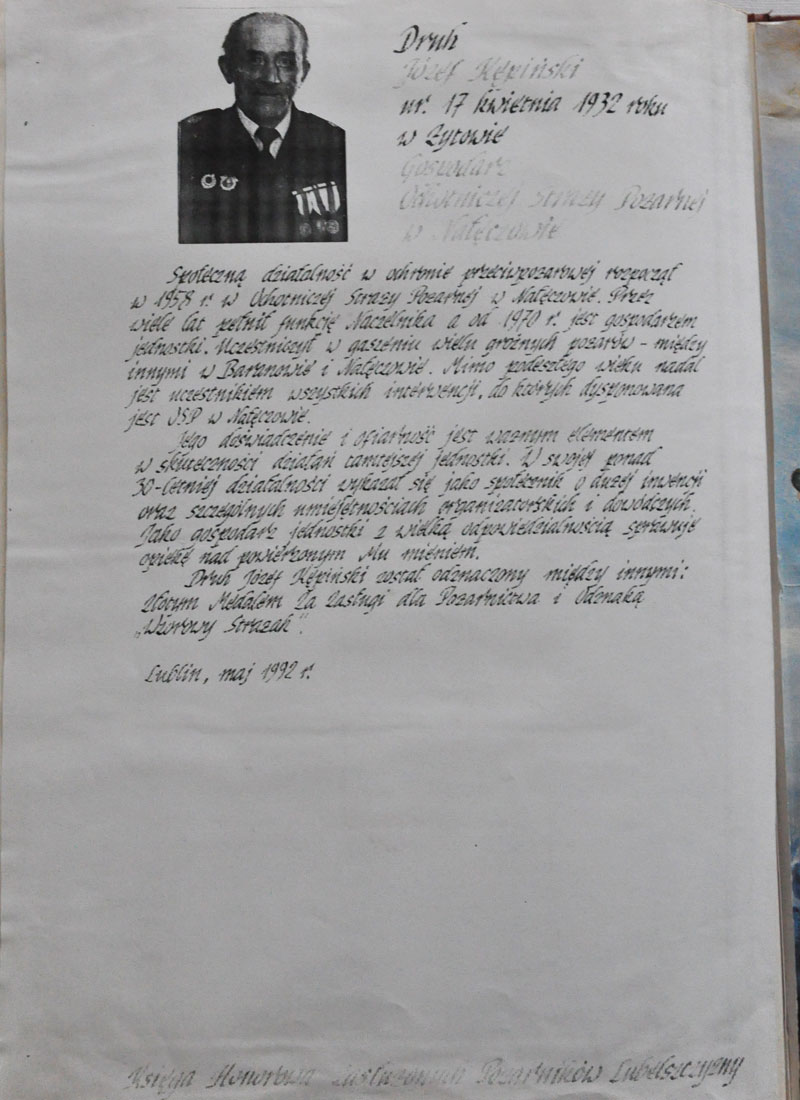 Druh
Józef Kępiński
ur. 17 kwietnia 1932 roku
w Żytowie
Gospodarz
Ochotniczej Straży Pożarnej
w Nałęczowie
Społeczną działalność w ochronie przeciwpożarowej rozpoczął
w 1958 r. w Ochotniczej Straży Pożarnej w Nałęczowie. Przez
wiele lat pełnił funkcję Naczelnika a od 1970 r. jest gospodarzem
jednostki. Uczestniczył w gaszeniu wielu groźnych pożarów – między
innymi w Baranowie i Nałęczowie. Mimo podeszłego wieku nadal
jest uczestnikiem wszystkich interwencji, do których dysponowana
jest OSP w Nałęczowie.
Jego doświadczenie i ofiarność jest ważnym elementem
w skuteczności działań tamtejszej jednostki. W swojej ponad
30-letniej działalności wykazał się jako społecznik o dużej inwencji
oraz szczególnych umiejętnościach organizatorskich i dowódczych.
Jako gospodarz jednostki z wielką odpowiedzialnością sprawuje
opiekę nad powierzonym Mu mieniem.
Druh Józef Kępiński został odznaczony między innymi:
Złotym Medalem Za Zasługi dla Pożarnictwa i Odznaką
„Wzorowy Strażak".
Lublin, maj 1992 r.
Księga Honorowa Zasłużonych Pożarników Lubelszczyzny